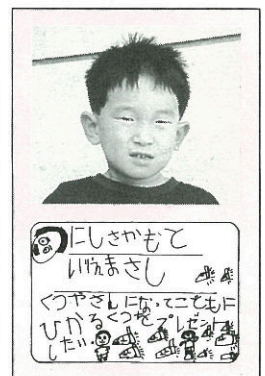 にしさかもと
いげんまさし
くつやさんになってこどもに
ひかるくつをプレゼント
したい。